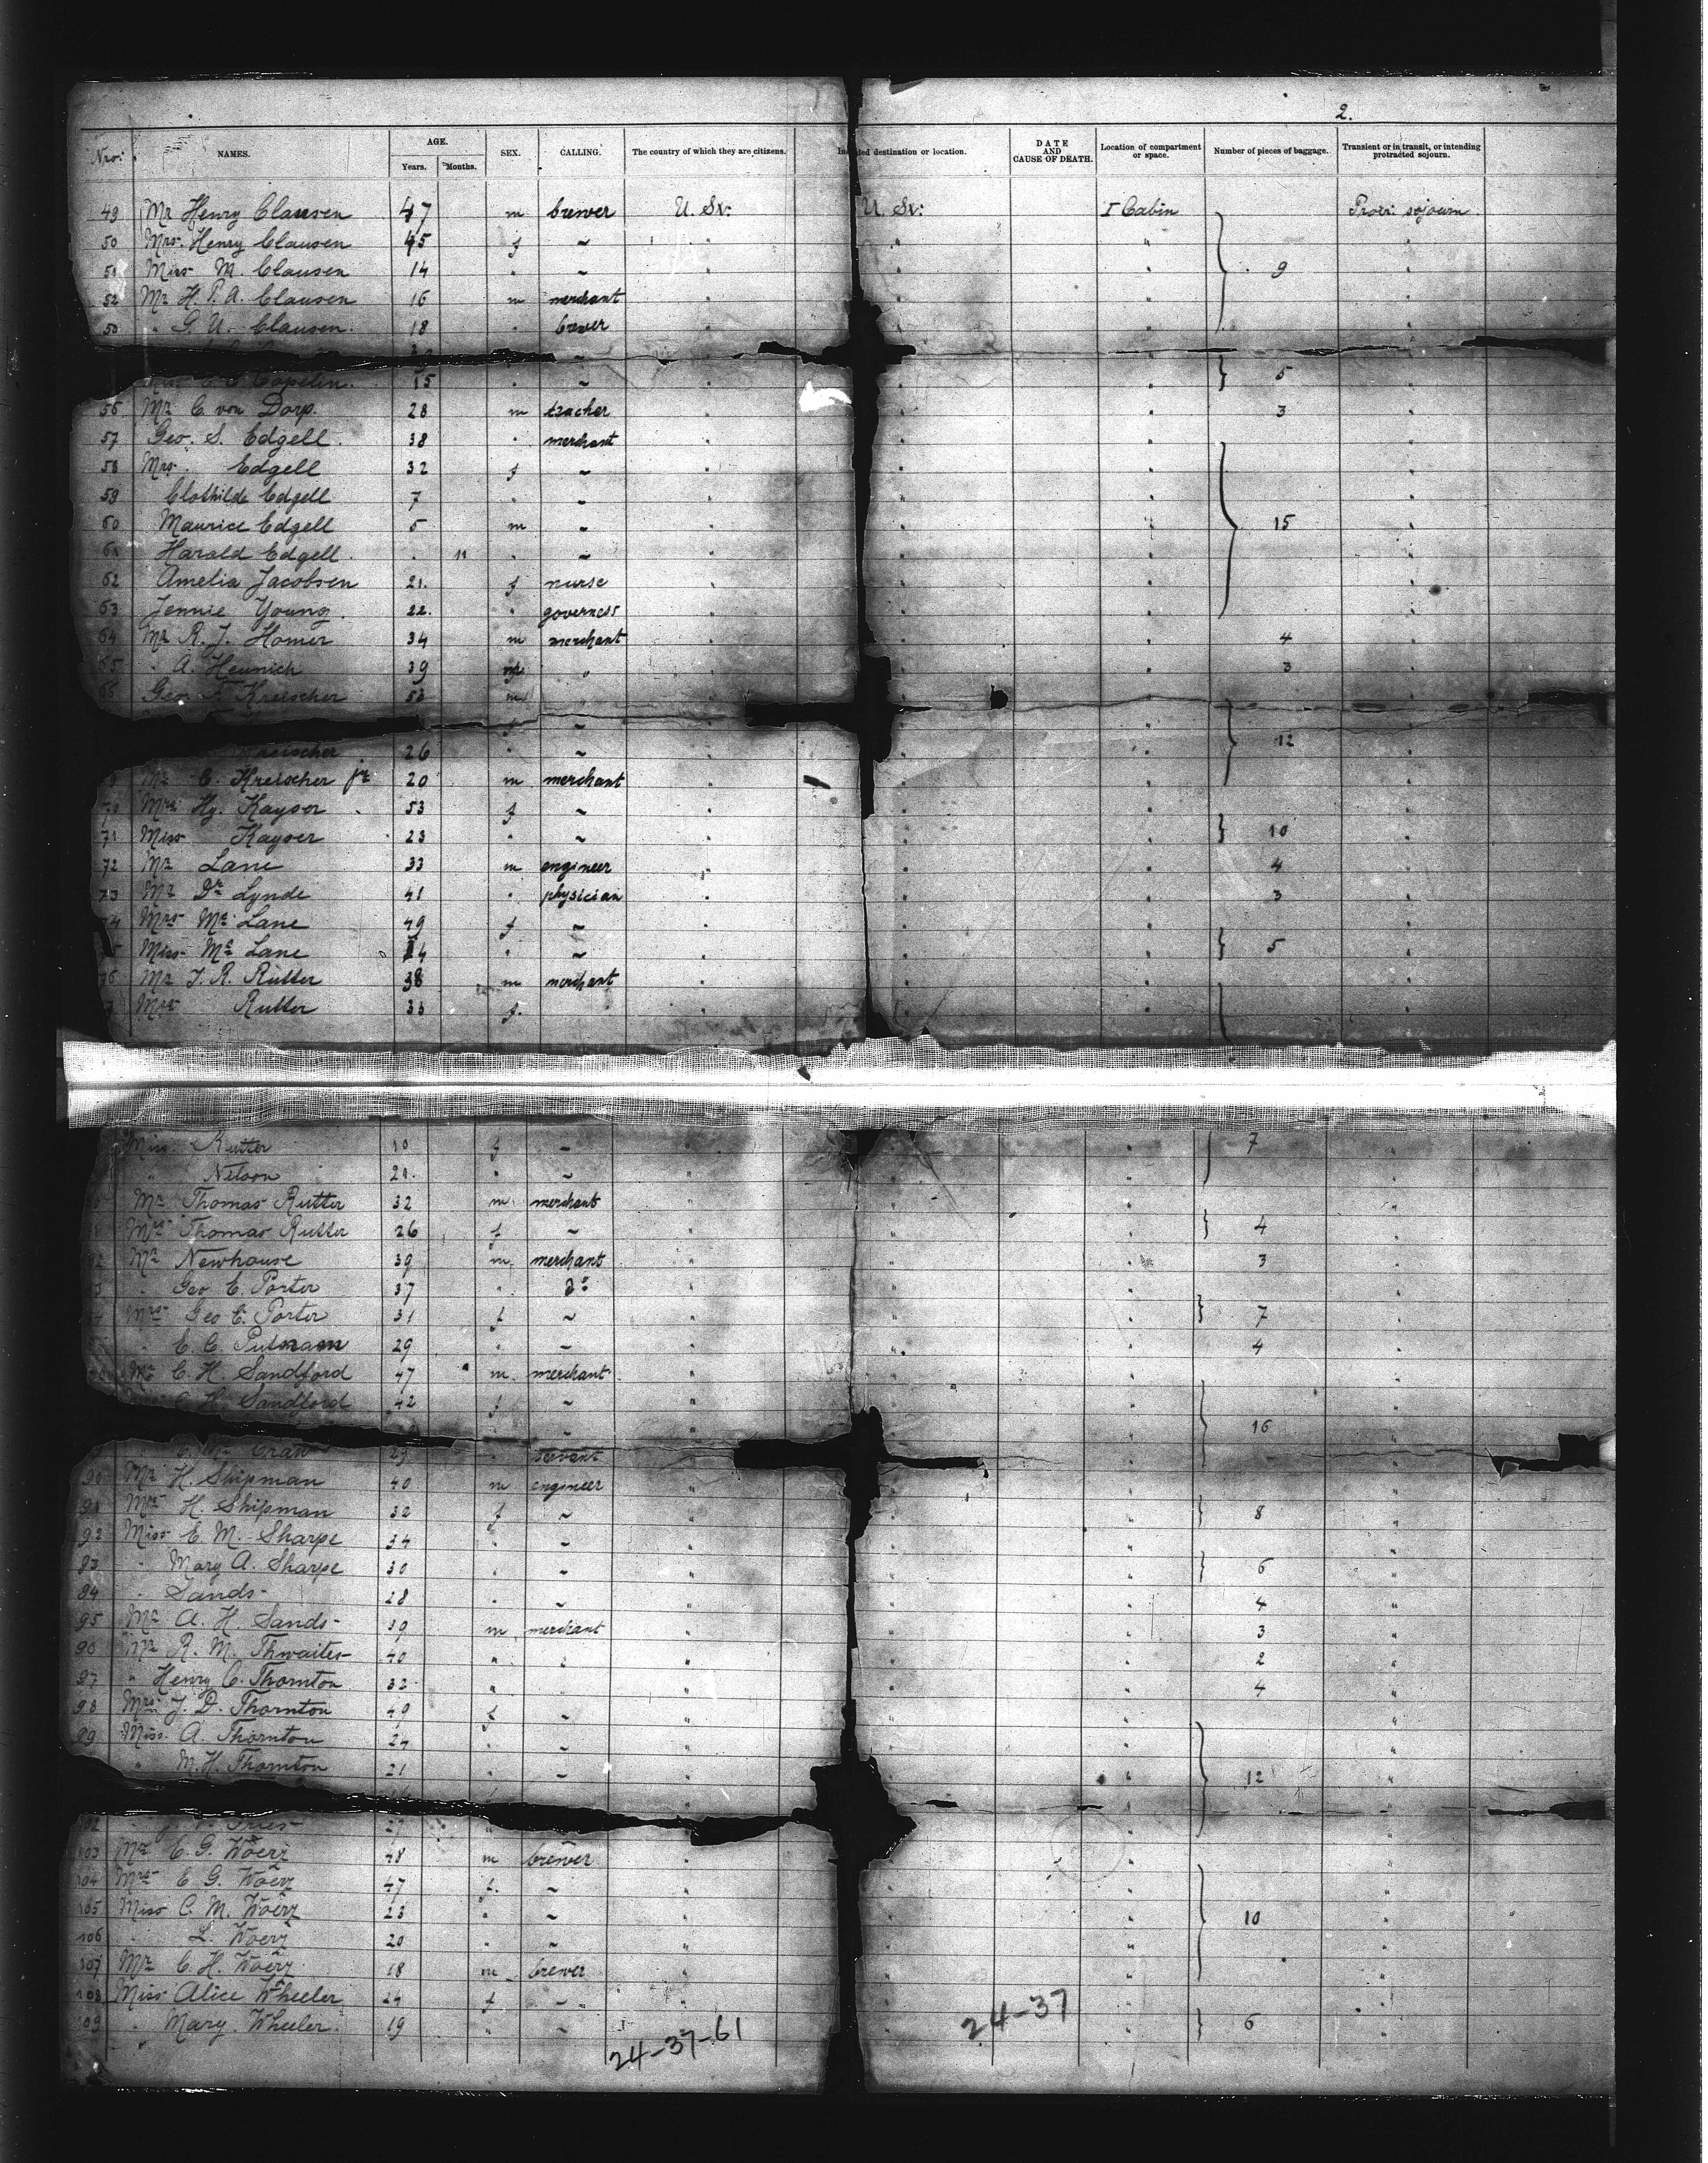 2.
Nro: NAMES. AGE. Years. Months. SEX. CALLING. The country of which they are citizens. destination or location. DATE AND CAUSE OF DEATH. Location of compartment or space. Number of pieces of baggage. Transient or in transit, or intending protracted sojourn.
49 Mr Henry Clausen 47 m brewer U. St: U. St: I Cabin sojourn.
50 Mrs. Henry Clausen 45 f ~ "
51 Miss M. Clausen 14 " ~ " 9
52 Mr H. P. A. Clausen 16 m merchant "
53 " G. U. Clausen. 18 " brewer "
~
Copelin. 15 " ~ " 5
56 Mr C. von Dorp. 28 m teacher " 3
57 Geo. S. Edgell. 38 " merchant "
58 Mrs. Edgell 32 f ~ "
59 Clothilde Edgell 7 " ~ "
60 Maurice Edgell 5 m ~ " 15
61 Harold Edgell 11 " ~ "
62 Amelia Jacobsen 21. f nurse "
63 Jennie Young. 22. " governess "
64 Mr R. J. Homer 34 m merchant " 4
65 " A. Heunich 39 m " 3
66 Geo. Kreischer 53 m
f ~
Kreischer 26 " ~ " 12
Mr C. Kreischer jr 20 m merchant "
70 Mrs Hy. Kayser 53 f ~ "
71 Miss Kayser 23 " ~ " 10
72 Mr Lane 33 m engineer " 4
73 Mr Dr Lynde 41 " physician " 3
74 Mrs Mc Lane 49 f ~ "
75 Miss Mc Lane 24 " ~ " 5
76 Mr J. R. Rutter 38 m merchant "
Mrs Rutter 33 f. "
Miss. Rutter 10 f ~ " 7
" Nelson 21. " ~ "
Mr Thomas Rutter 32 m. merchant "
Mrs Thomas Rutter 26 f ~ " 4
Mr Newhouse 39 m. merchant " 3
" Geo C. Porter 37 " do "
Mrs Geo C. Porter 31 f ~ " 7
" E. C. Putnam 29 " ~ " 4
Mr C. H. Sandford 47 m. merchant "
C. H. Sandford 42 f ~ "
16
servant
90 Mr H. Shipman 40 m engineer "
91 Mrs H. Shipman 32 f ~ " 8
92 Miss E. M. Sharpe 34 " ~ "
93 " Mary A. Sharpe 30 " ~ " 6
94 " Sands 28 " ~ " 4
95 Mr A. H. Sands 39 m merchant " 3
96 Mr R. M. Thwaites 40 " " 2
97 " Henry C. Thornton 32 " " 4
98 Mrs. J. D. Thornton 49 f ~ "
99 Miss. A. Thornton 24 " ~ "
" M. H. Thornton 21 " ~ " 12
102
103 Mr E. G. Woerz 48 m brewer "
104 Mrs E. G. Woerz 47 f. ~ "
105 Miss C. M. Woerz 23 " ~ " 10
106 " L. Woerz 20 " ~ "
107 Mr C. H. Woerz 18 m brewer "
108 Miss Alice Wheeler 24 f ~ "
109 " Mary. Wheeler. 19 " ~ " 6
24-37-61 24-37